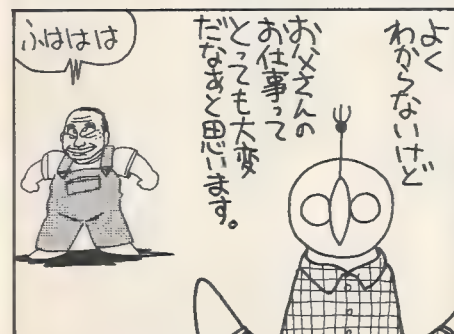 よく
わからないけど
お父さんの
お仕事って
とっても大変
だなあと思います。
ふははは